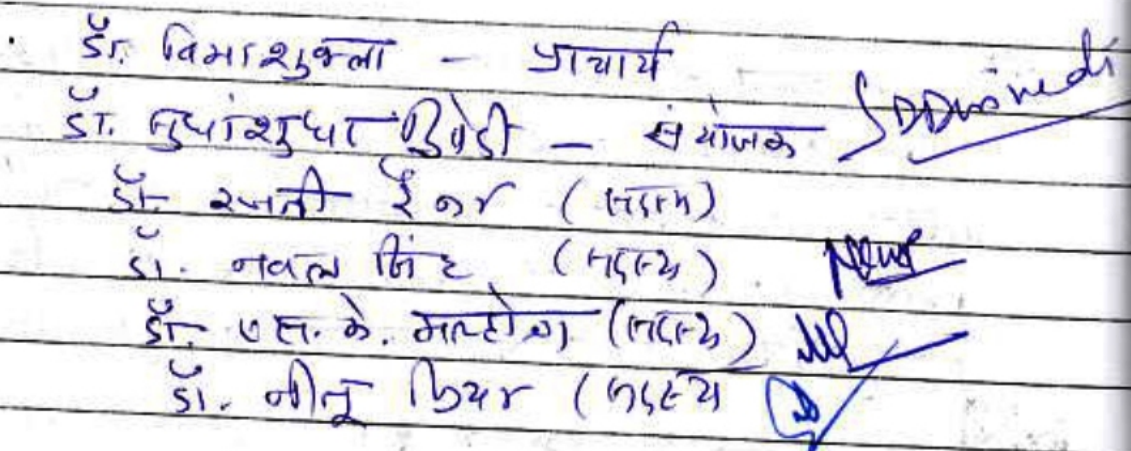 डॉ. विभा शुक्ला - प्राचार्य
डॉ. सुधांशुधर द्विवेदी - संयोजक SDDwivedi
डॉ. रजनी (सदस्य)
डॉ. नवल सिंह (सदस्य)
डॉ. एस. के. मल्होत्रा (सदस्य)
डॉ. नीलू (सदस्य